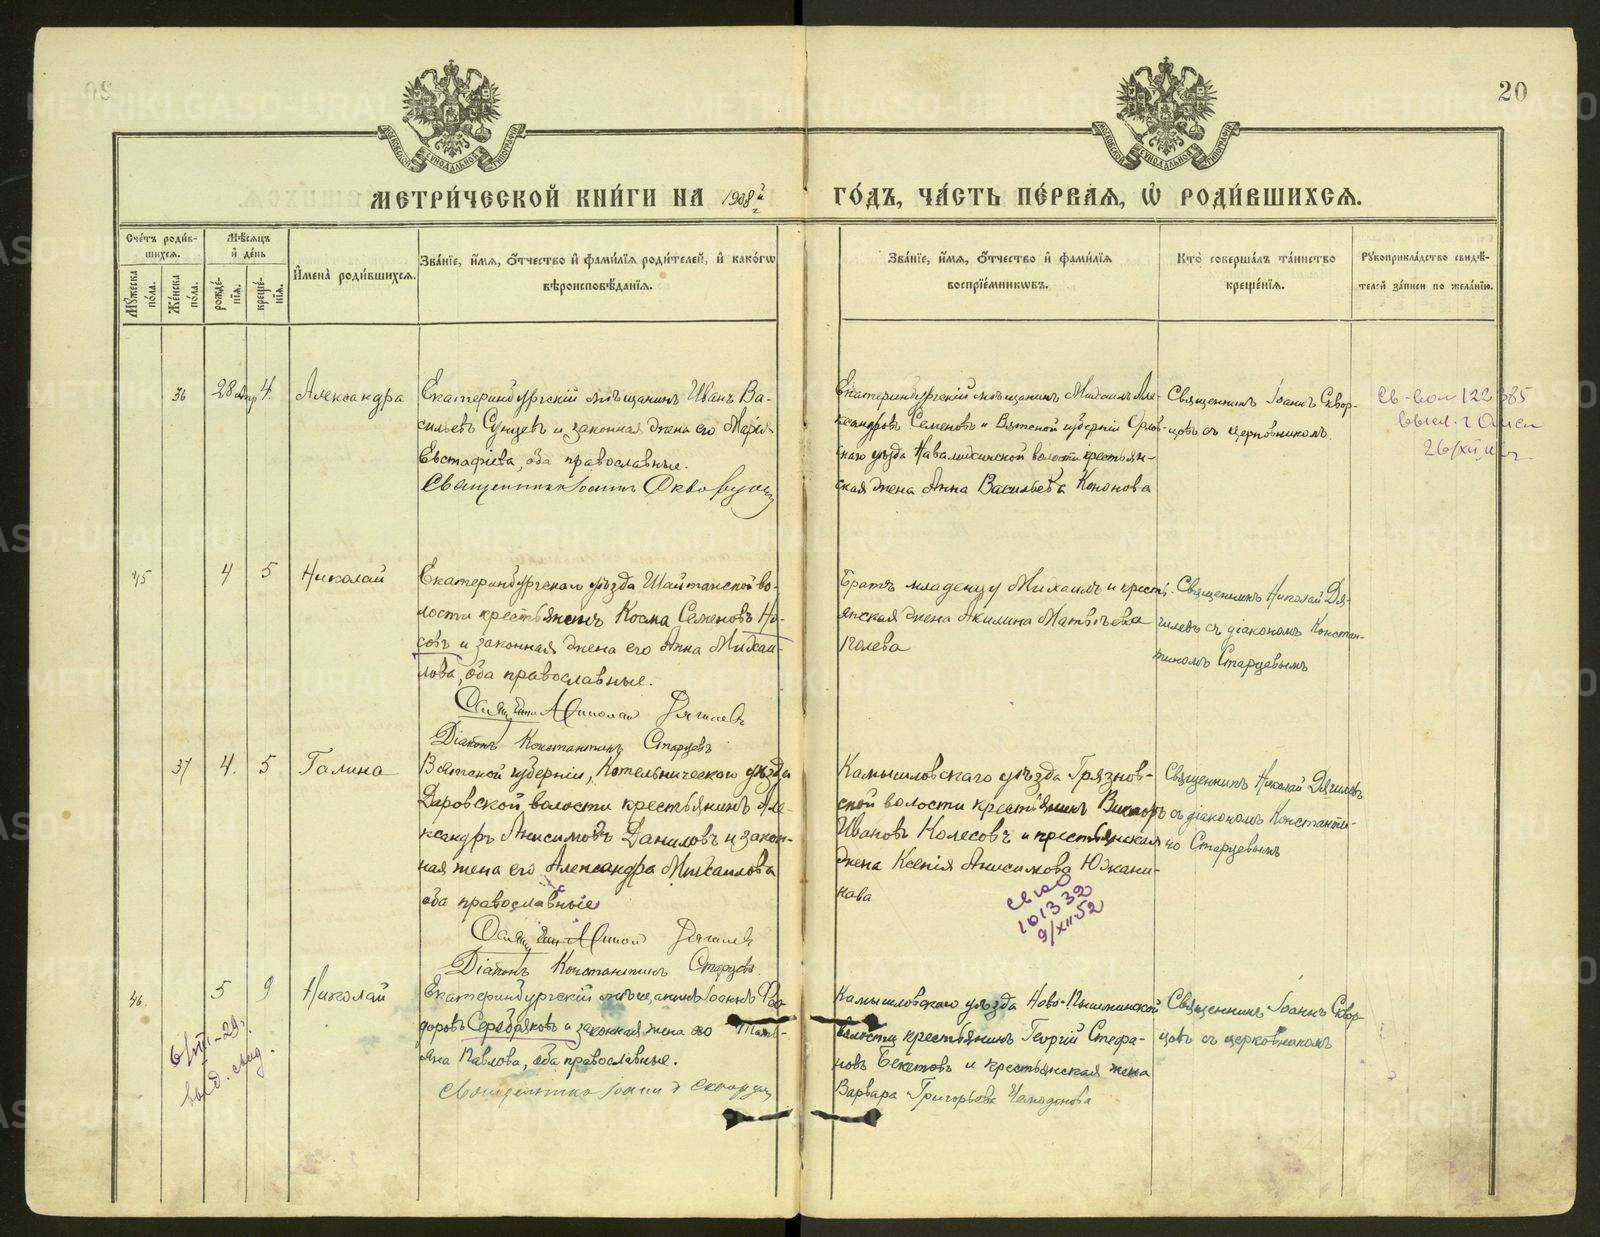 20
МЕТРИ́ЧЕСКОЙ КНИ́ГИ НА 1908й ГО́ДЪ, ЧА́СТЬ ПЕ́РВАЯ, Ѡ҆ РОДИ́ВШИХСЯ.
Сче́тъ роди́в-
шихся.
Мѣ́сяцъ
и҆ де́нь
Мꙋ́жеска по́ла.
Же́нска по́ла.
рожде́-
нїя.
креще́-
нїя.
И҆мена̀ роди́вшихся.
Зва́нїе, и҆́мя, ѻ҆́тчество и҆ фами́лїя роди́телей, и҆ како́гѡ
вѣроисповѣ́данїя.
Зва́нїе, и҆́мя, ѻ҆́тчество и҆ фами́лїя
воспрїе́мникѡвъ.
Кто̀ соверша́лъ та́инство
креще́нїя.
Рꙋкоприкла́дство свидѣ́-
телей за́писи по жела́нїю.
36 28 4. Александра
Екатеринбургскій мѣщанинъ Иванъ Ва-
сильевъ Сунцевъ и законная жена его Марія
Евстафіева, оба православные.
Священникъ Іоаннъ Скворцовъ
Екатеринбургскій мѣщанинъ Михаилъ Але-
ксандровъ Семеновъ и Вятской губерніи Орлов-
скаго уѣзда волости крестьян-
ская жена Анна Васильева Кононова
Священникъ Іоаннъ Сквор-
цовъ съ церковникомъ.
св-во 122385
26/XII
45 4 5 Николай
Екатеринбургскаго уѣзда Шайтанской во-
лости крестьянинъ Косма Семеновъ Но-
совъ и законная жена его Анна Михаи-
лова, оба православные.
Священникъ Николай Дягилевъ
Діаконъ Константинъ Старцевъ
Братъ младенцу Михаилъ и кресть-
янская жена Акилина Матвѣева
Голева
Священникъ Николай Дя-
гилевъ съ діакономъ Констан-
тиномъ Старцевымъ
37 4. 5 Галина
Вятской губерніи, Котельническаго уѣзда
Даровской волости крестьянинъ Але-
ксандръ Анисимовъ Даниловъ и закон-
ная жена его Александра Михаилова
оба православные
Священникъ Николай Дягилевъ
Діаконъ Константинъ Старцевъ.
Камышловскаго уѣзда Грязнов-
ской волости крестьянинъ Викторъ
Ивановъ Колесовъ и крестьянская
жена Ксенія Анисимова Южани-
нова
св-во
101332
9/XII 52
Священникъ Николай Дягилевъ
съ діакономъ Константи-
но Старцевымъ
46. 5 9 Николай
6/VIII-29г.
выд. свид.
Екатеринбургскій мѣщанинъ Іоаннъ Фео-
доровъ Серебряковъ и законная жена его Тать-
яна Павлова, оба православные.
Священникъ Іоаннъ Скворцовъ
Камышловскаго уѣзда Ново-Пышминской
волости крестьянинъ Георгій Стефа-
новъ Бекетовъ и крестьянская жена
Варвара Григорьева Чемоданова
Священникъ Іоаннъ Сквор-
цовъ съ церковникомъ
METRIKI.GASO-URAL.RU